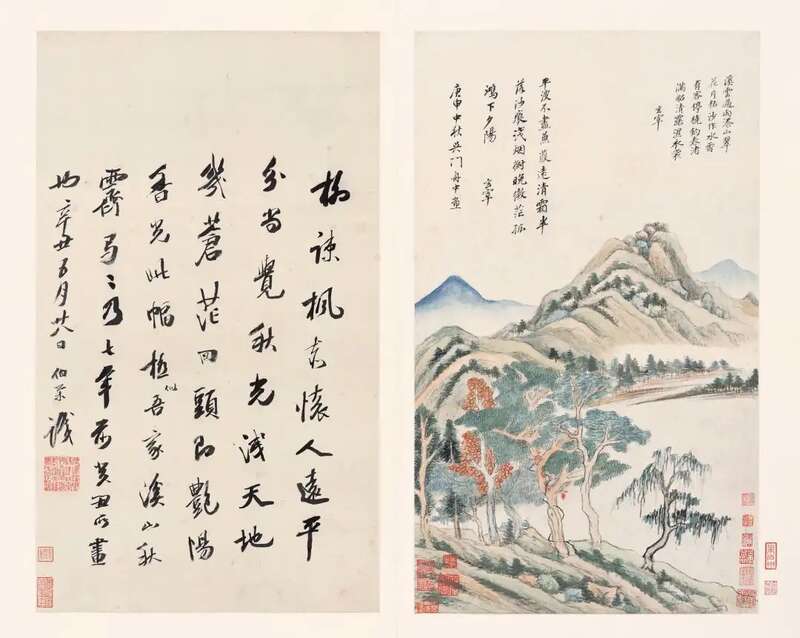 溪雲過雨添山翠
花片粘沙作水香
有客停橈釣春渚
滿船清露濕衣裳
玄宰
平波不盡蒹葭遠清霜半
落沙痕淺烟樹晚微茫孤
鴻下夕陽 玄宰
庚申中秋吳門舟中畫
柳疎楓老懷人遠平
分尚覺秋光淺天地
幾蒼茫回頭即艷陽
香光此幅極似吾家溪山秋
霽乃七年前癸丑所畫
也辛丑五月廿八日伯榮識